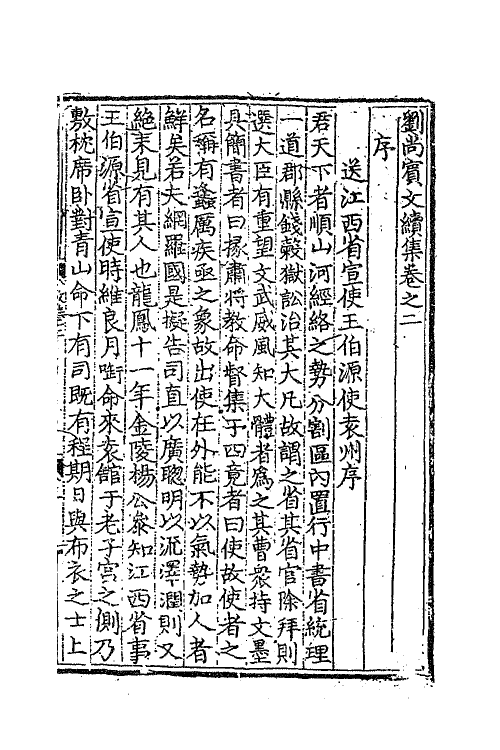 劉尚賓文續集卷之二
序
送江西省宣使王伯源使袁州序
君天下者順山河經絡之勢分割區內置行中書省統理
一道郡縣錢穀獄訟治其大凡故謂之省其省官除拜則
選大臣有重望文武威風知大體者為之其曹眾持文墨
具簡書者曰掾肅將教命督集于四竟者曰使故使者之
名稱有蠭厲疾亟之象故出使在外能不以氣勢加人者
鮮矣若夫網羅國是擬告司直以廣聰明以沠澤潤則又
絕未見有其人也龍鳳十一年金陵楊公參知江西省事
王伯源省宣使時維良月啣命來袁舘于老子宮之側乃
敷枕席卧對青山命下有司既有程期日與布衣之士上